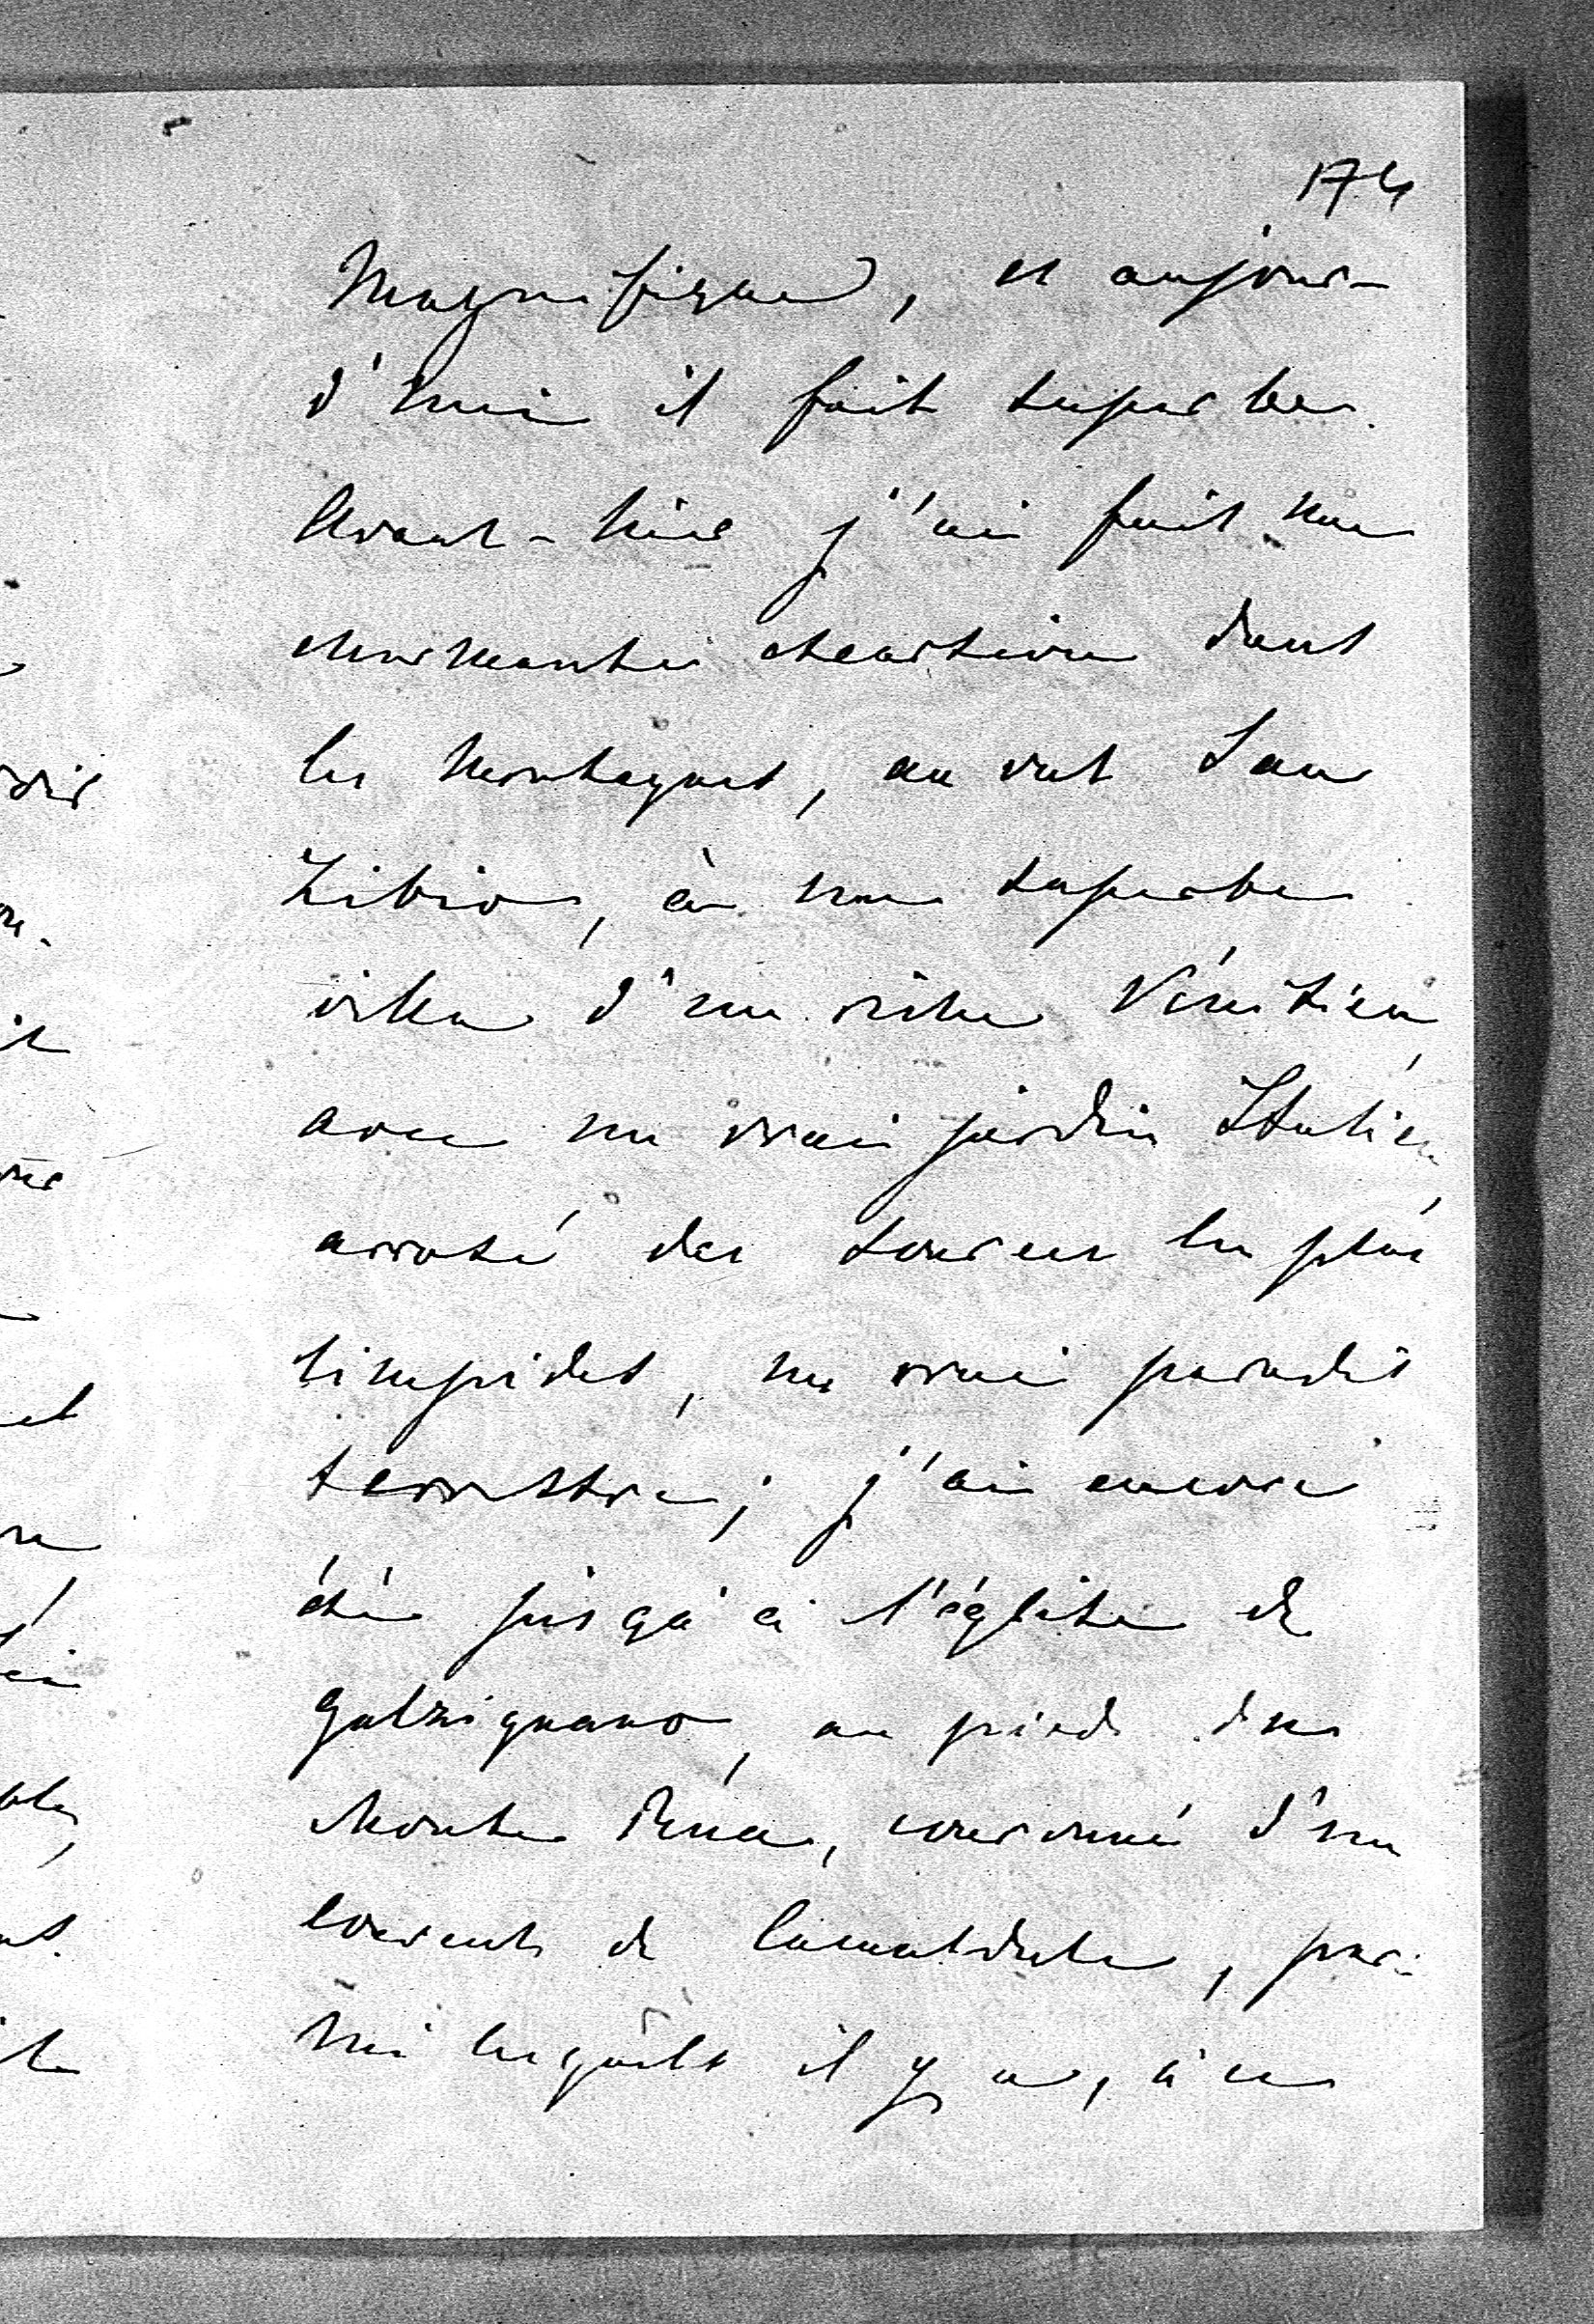 174
magnifique, et aujour-
d'hui il fait superbe.
Avant-hier j'ai fait une
charmante dans
les montagnes, au val San
Zibio, à une superbe
villa d'un riche Vénitien,
avec un vrai jardin Italien,
arrosé des sources les plus
limpides, un vrai paradis
terrestre; j'ai encore
été jusqu'à l'église de
Galzignano, au pied du
Monte Rua, couronné d'un
couvent de Camaldule, par-
mi lesquels il y a, à ce